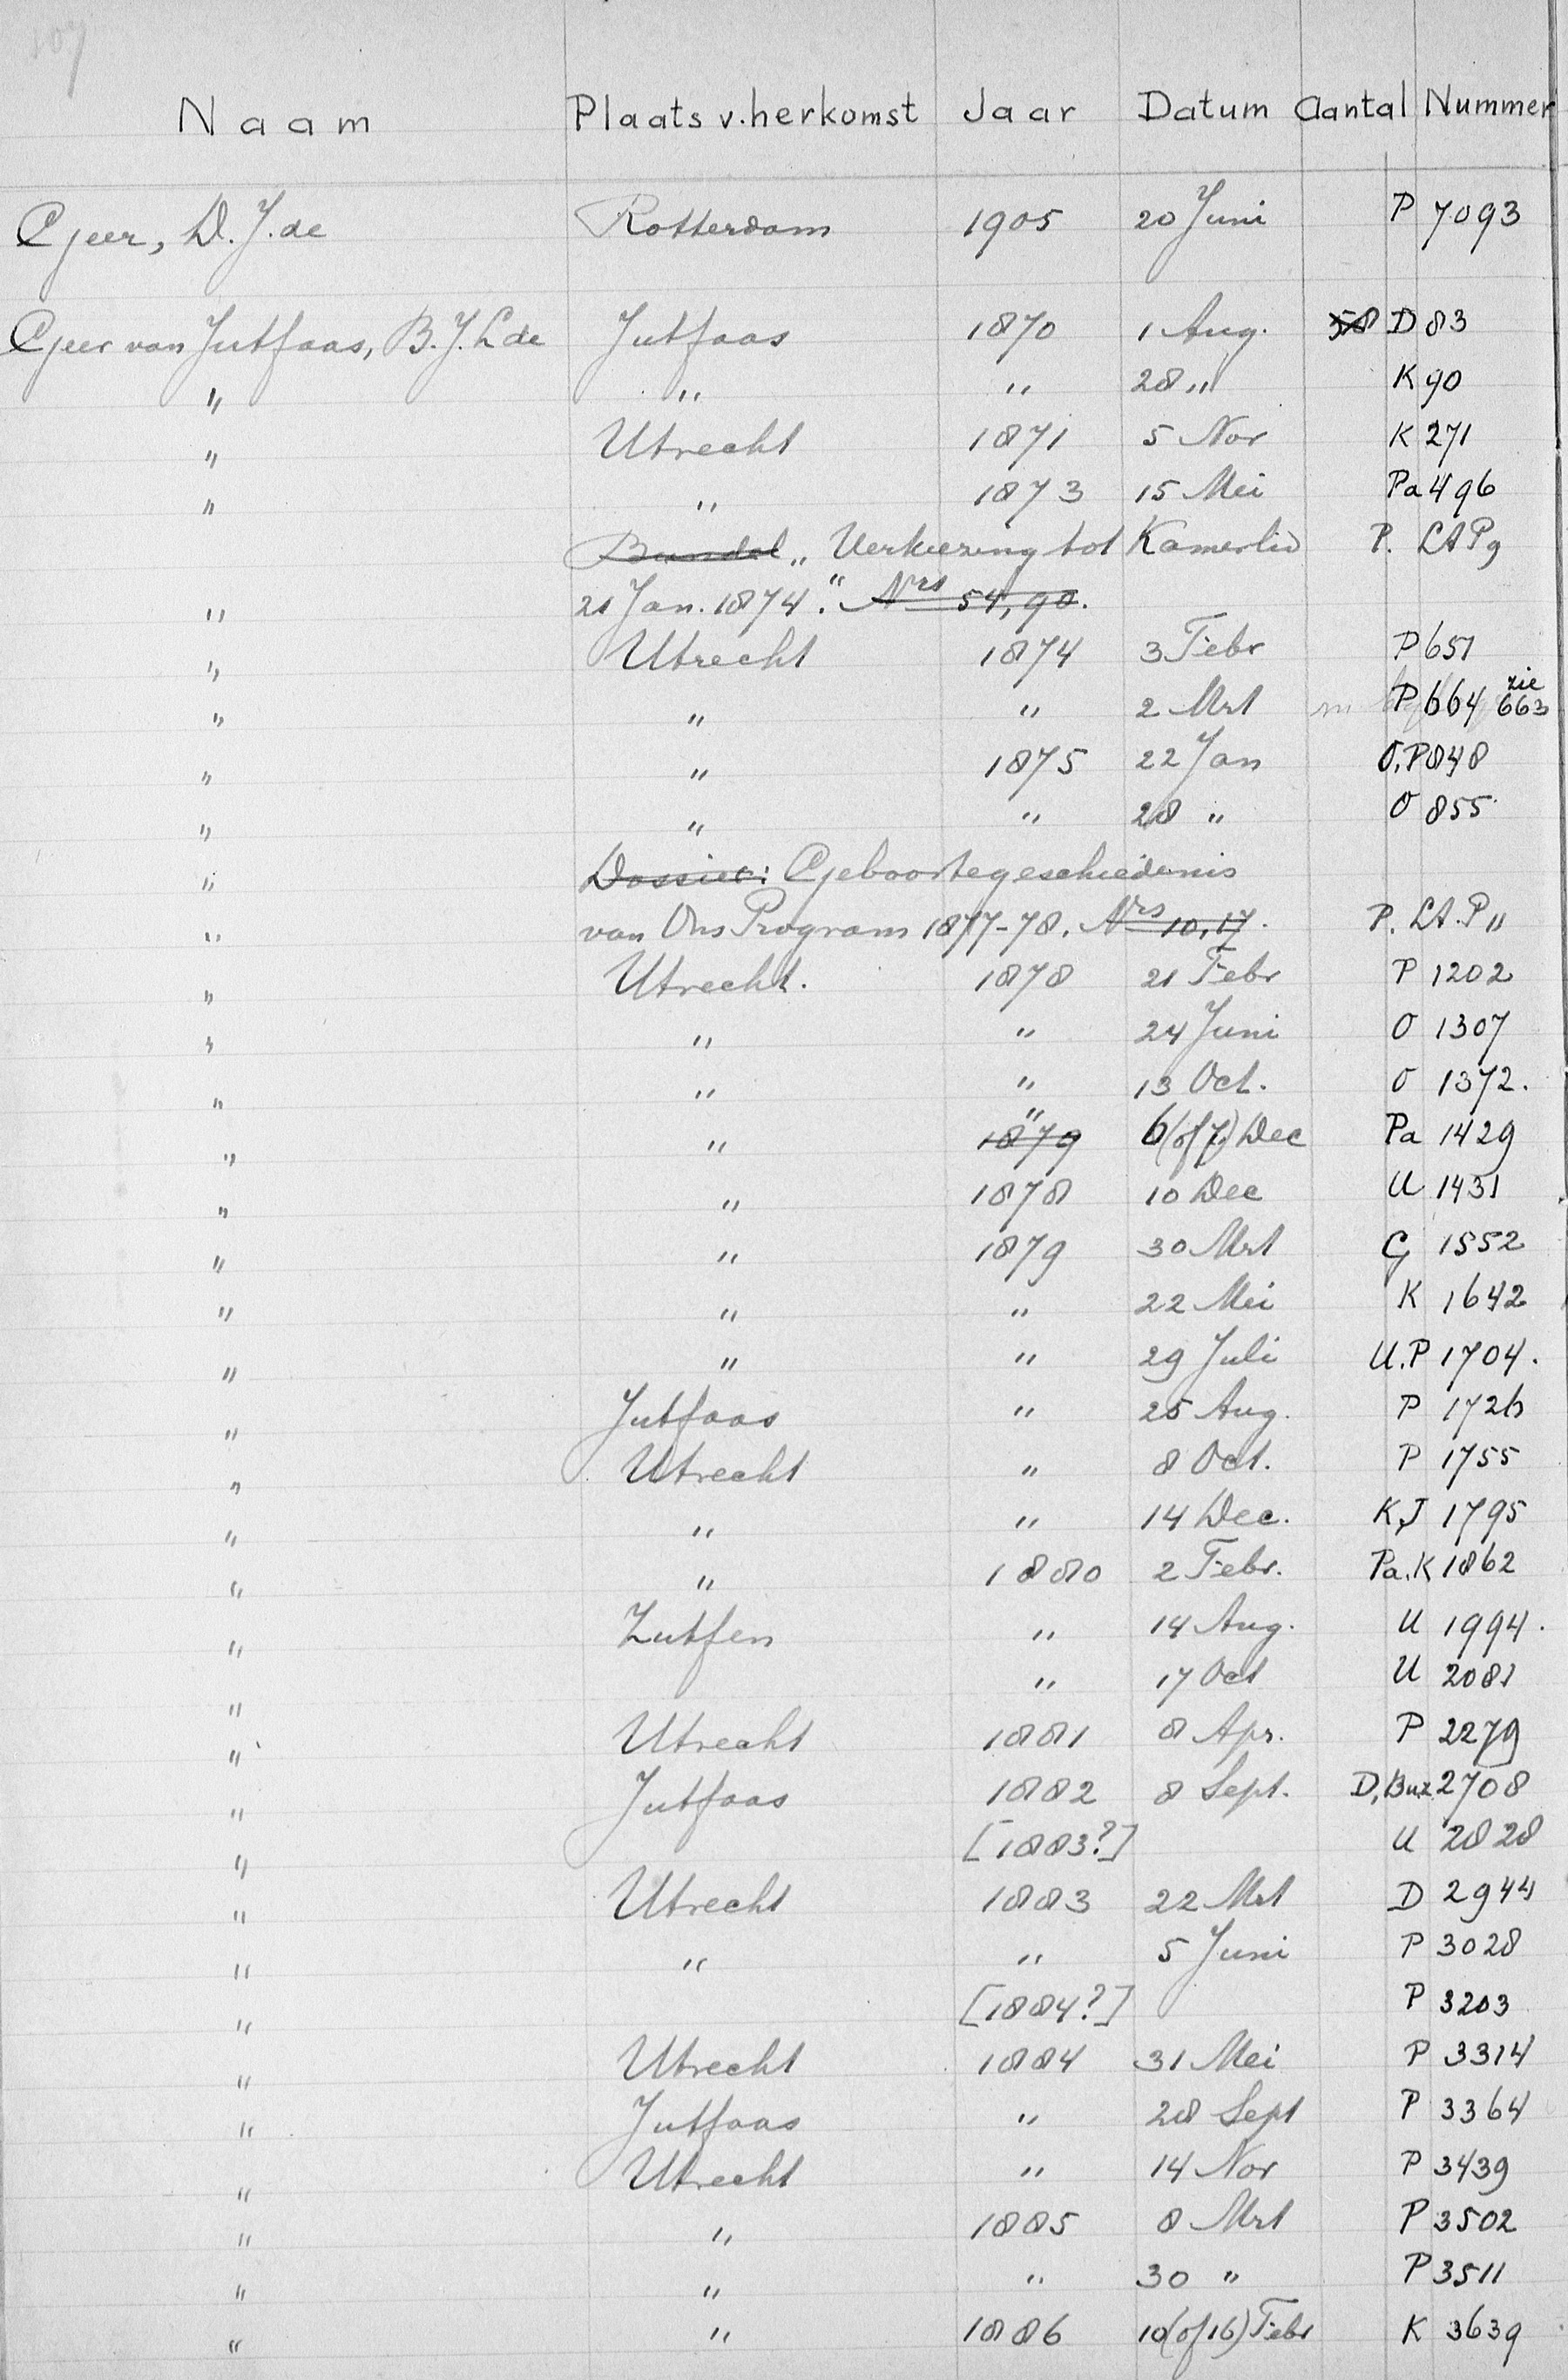 107
Naam Plaats v. herkomst Jaar Datum Aantal Nummer
Geer, D. J. de Rotterdam 1905 20 Juni P 7093
Geer van Jutfaas, B. J. L de Jutfaas 1870 1 Aug. 58 D 83
" " " 28 " K 90
" Utrecht 1871 5 Nov K 271
" " 1873 15 Mei Pa 496
Bundel „Verkiezing tot Kamerlid P. LA P9
" 21 Jan. 1874." Nrs 54, 90.
" Utrecht 1874 3 Febr P 651
" " " 2 Mrt P 664 zie 663
" " 1875 22 Jan O.P 848
" " " 28 " O 855
" Dossier: Geboortegeschiedenis
" van Ons Program 1877-78. Nrs 10, 17. P. LA. P11
" Utrecht. 1878 21 Febr P 1202
" " " 24 Juni O 1307
" " " 13 Oct. O 1372.
" " 1879 " 6 (of 7) Dec Pa 1429
" " 1878 10 Dec U 1431
" " 1879 30 Mrt G 1552
" " " 22 Mei K 1642
" " " 29 Juli U.P 1704.
" Jutfaas " 25 Aug. P 1726
" Utrecht " 8 Oct. P 1755
" " " 14 Dec. K,J 1795
" " 1880 2 Febr. Pa.K 1862
" Zutfen " 14 Aug. U 1994.
" " 17 Oct U 2081
" Utrecht 1881 8 Apr. P 2279
" Jutfaas 1882 8 Sept. D, Buz. 2708
" [1883?] U 2828
" Utrecht 1883 22 Mrt D 2944
" " " 5 Juni P 3028
" [1884?] P 3203
" Utrecht 1884 31 Mei P 3314
" Jutfaas " 28 Sept P 3364
" Utrecht " 14 Nov P 3439
" " 1885 8 Mrt P 3502
" " " 30 " P 3511
" " 1886 10 (of 16) Febr K 3639